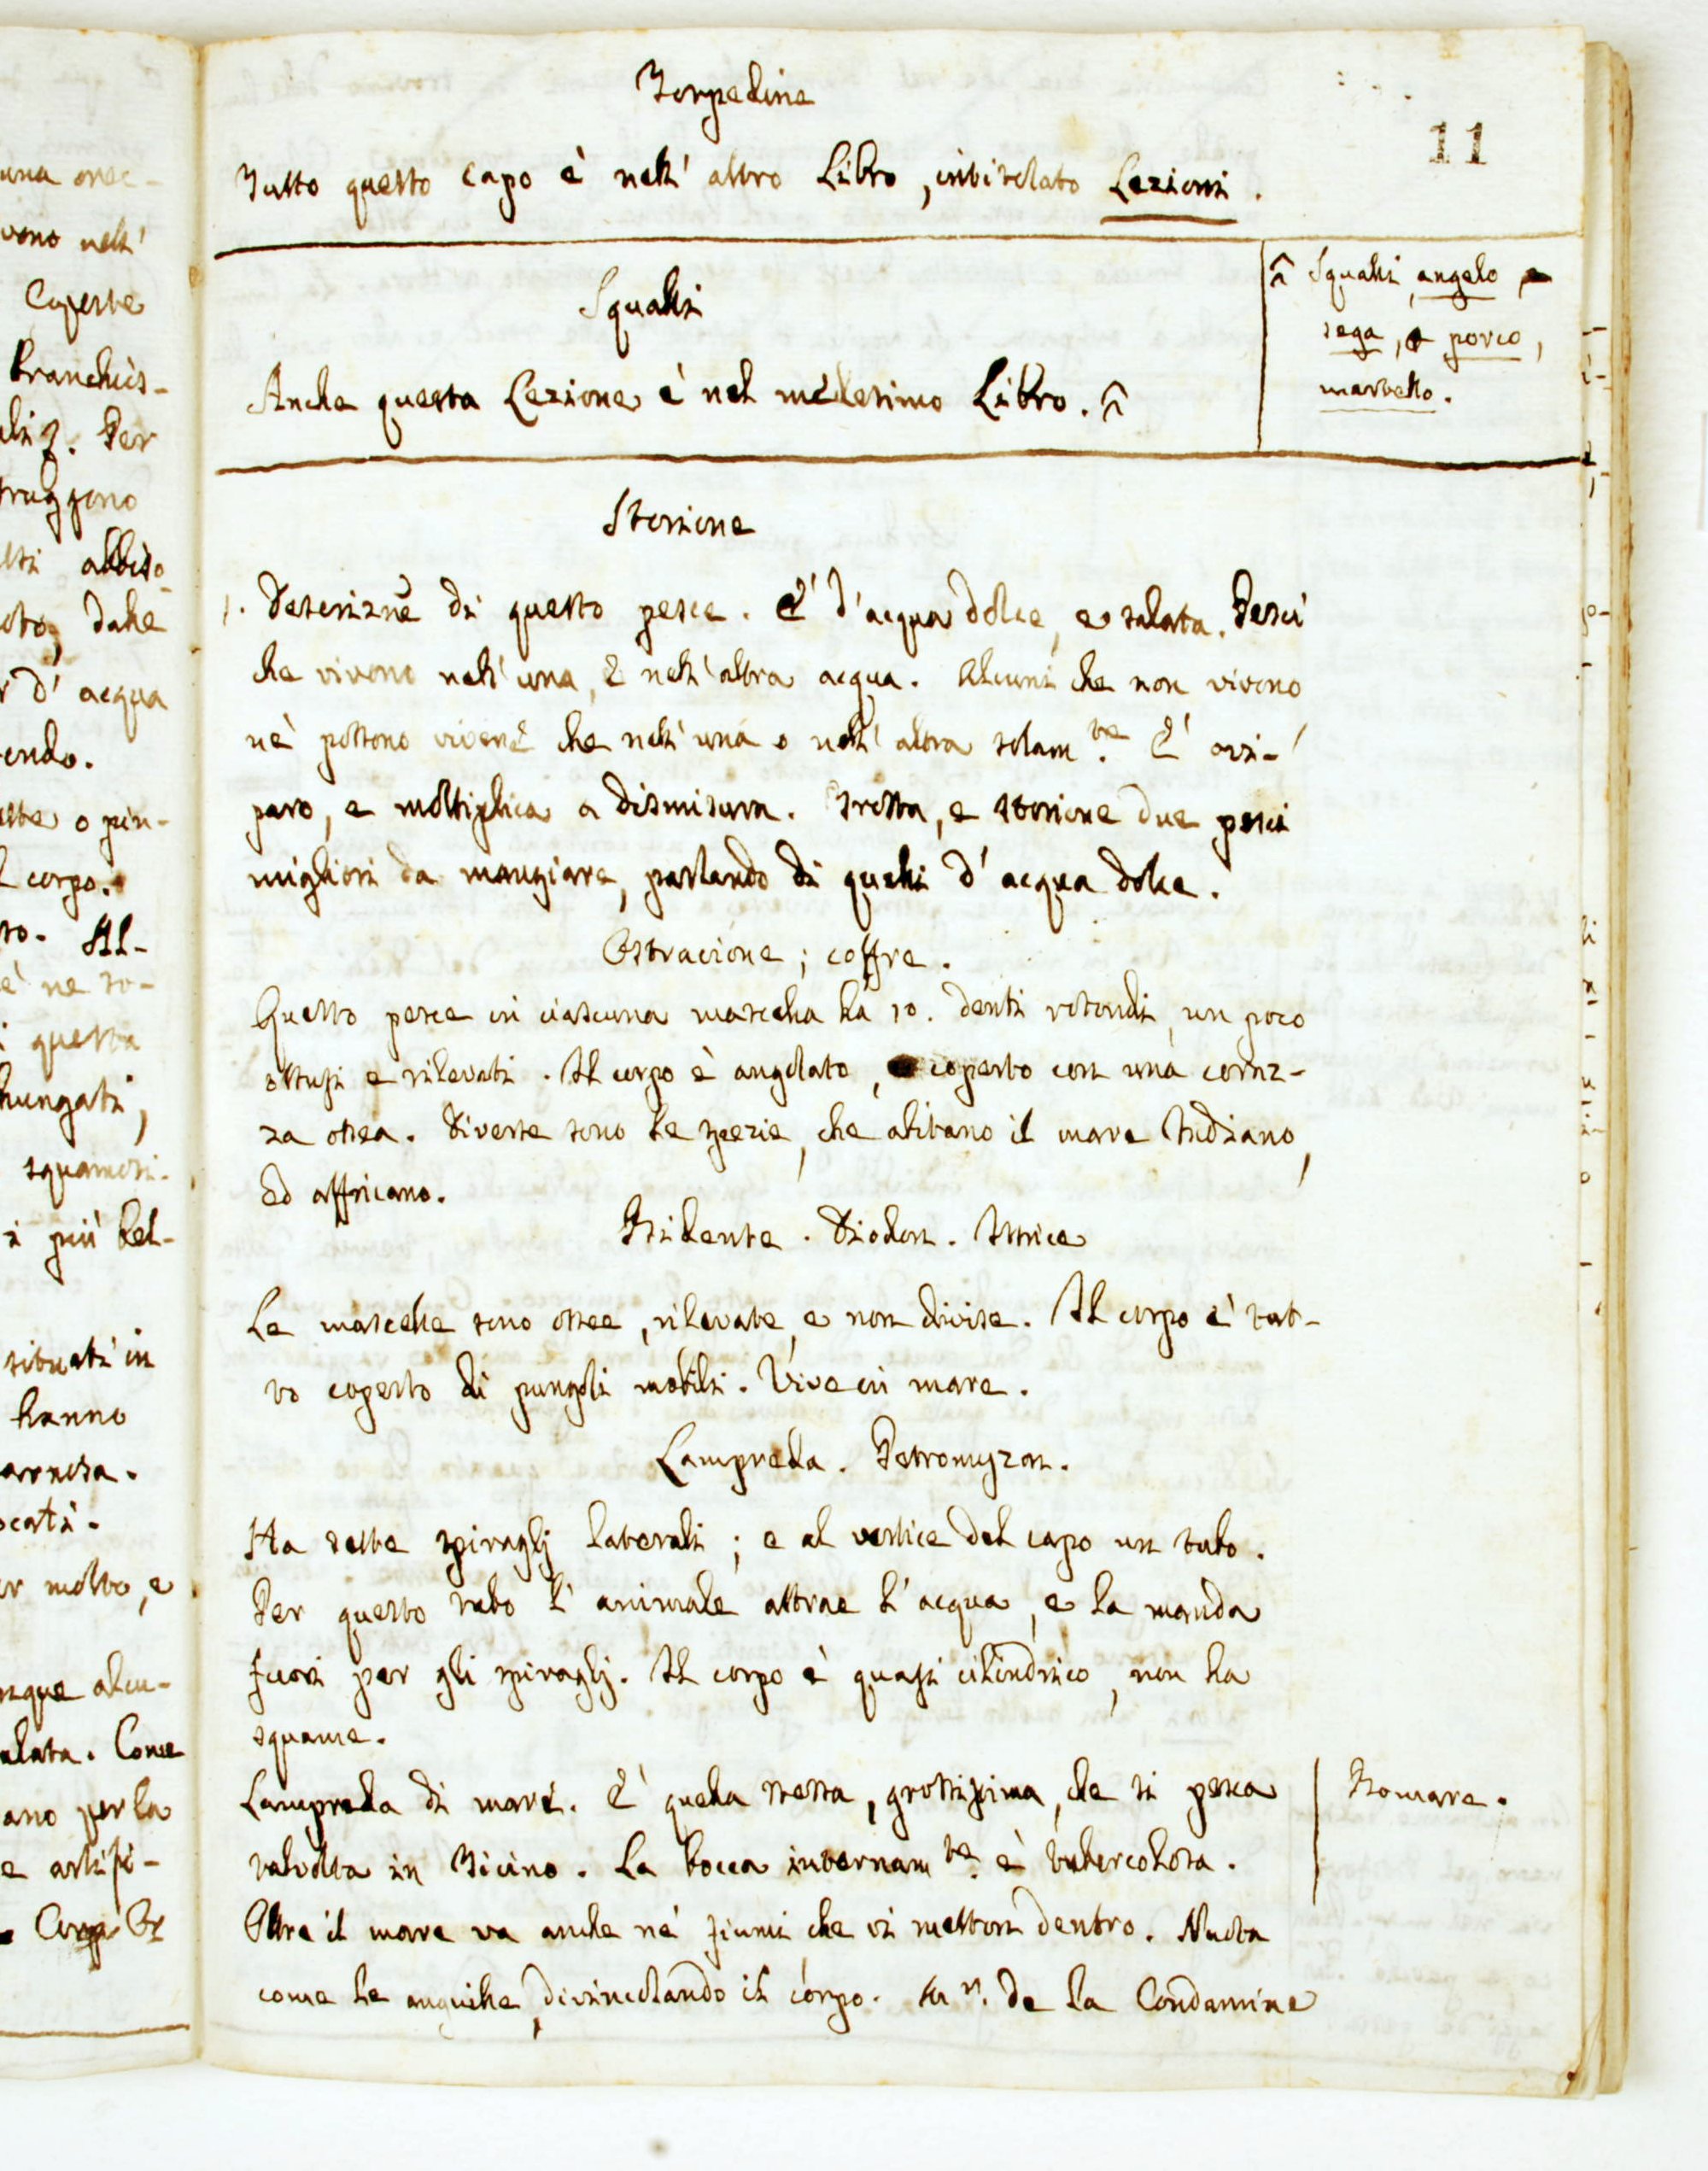 una orec-
vono nell'
Coperte
branchios-
Per
truggono
abbiso-
dalle
r d' acqua
endo.
o pin-
l corpo.
to. Al-
è ne so-
i questa
lungati,
squamosi.
i più bel-
situati in
hanno
carnosa.
er molto, e
alcu-
alata. Come
ano per la
e artifi-
11
Torpedine
Tutto questo Capo è nell' altro Libro, intitolato Lezioni.
Squali
Anche questa Lezione è nel medesimo Libro. ^
^ Squali, angelo
sega, porco,
martello.
Storione
1. Descrizne di questo pesce. E' d'acqua dolce, e salata. Pesci
che vivono nell' una, e nell' altra acqua. Alcuni che non vivono
nè possono vivere che nell' una o nell' altra solam.te E' ovi-
paro, e moltiplica a dismisura. Trotta, e storione due pesci
migliori da mangiare, parlando di quelli d' acqua dolce.
Ostracione; coffre.
Questo pesce in ciascuna mascella ha 10. denti rotondi, un poco
ottusi e rilevati. Il corpo è angolato, coperto con una coraz-
za ossea. Diverse sono le spezie, che abitano il mare Indiano,
ed affricano.
Bidente. Diodon. Istrice
Le mascelle sono ossee, rilevate, e non divise. Il corpo è tut-
to coperto di pungoli mobili. Vive in mare.
Lampreda. Petromyzon.
Ha sette spiraglj laterali; e al vertice del capo un tubo.
Per questo tubo l' animale attrae l' acqua, e la manda
fuori per gli spiraglj. Il corpo è quasi cilindrico, non ha
squame.
Lampreda di mare. E' quella stessa, grossissima, che si pesca
talvolta in Ticino. La bocca internam.te è tubercolosa.
Oltre il mare va anche ne' fiumi che vi metton dentro. Nuota
come le anguille, divincolando il corpo. de la Condamine
Bomare.